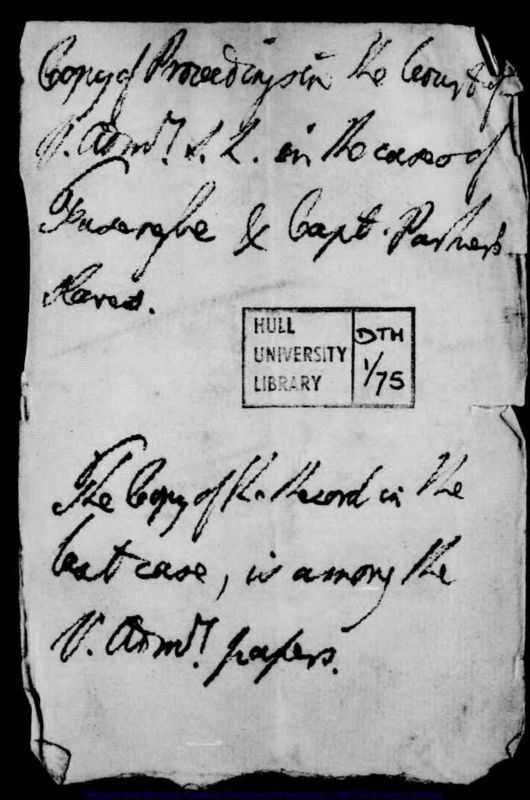 Copy of Proceedings in the Court of
V. Adm.l S. L. in the cases of
& Capt. Parker's
Slaves.
HULL
UNIVERSITY
LIBRARY
DTH
1/75
The Copy of the Record in the
last case, is among the
V. Adm.l papers.